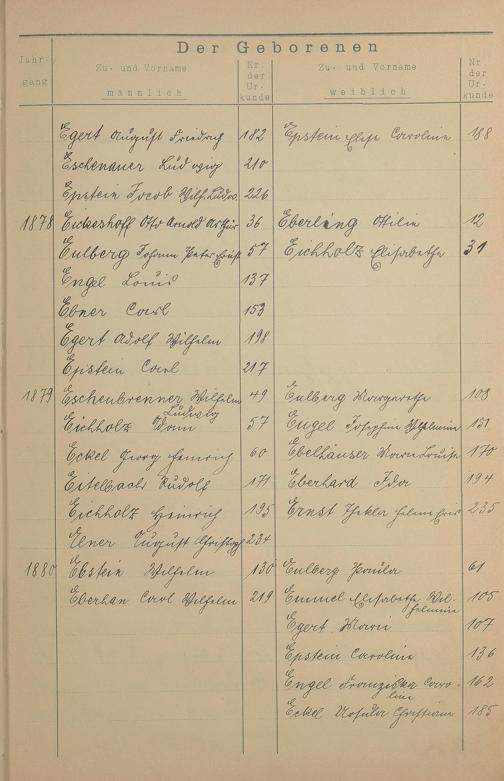 Der Geborenen
Jahr-
gang
Zu- und Vorname
männlich
Nr.
der
Ur-
kunde
Zu- und Vorname
weiblich
Nr.
der
Ur-
kunde
Egert August Friedrich 182 Epstein Elise Caroline 188
Eschenauer Ludwig 210
Epstein Jacob Wilh. Ludw. 226
1878 Eickeshoff Otto Arnold Arthur 36 Eberling Ottilie 12
Eulberg Johann Peter 57 Eichholz Elisabetha 31
Engel Louis 137
Ebner Carl 153
Egert Adolf Wilhelm 198
Epstein Carl 217
1879 Eschenbrenner Wilhelm 49 Eulberg Margaretha 108
Ludwig
Eichholz 57 Engel Josephine Wilhelmine 151
Eckel Georg Heinrich 60 Ebelhäuser Marie Louise 170
Eitelbach Rudolf 171 Eberhard Ida 194
Eichholz Heinrich 195 Ernst Thekla Helene 235
Elner August Christoph 234
1880 Ebstein Wilhelm 130 Eulberg Paula 61
Eberhan Carl Wilhelm 219 Emmel Elisabetha Wil- 105
helmine
Egert Marie 107
Epstein Caroline 136
Engel Franziska Caro- 162
line
Eckel Ursula Christiane 185